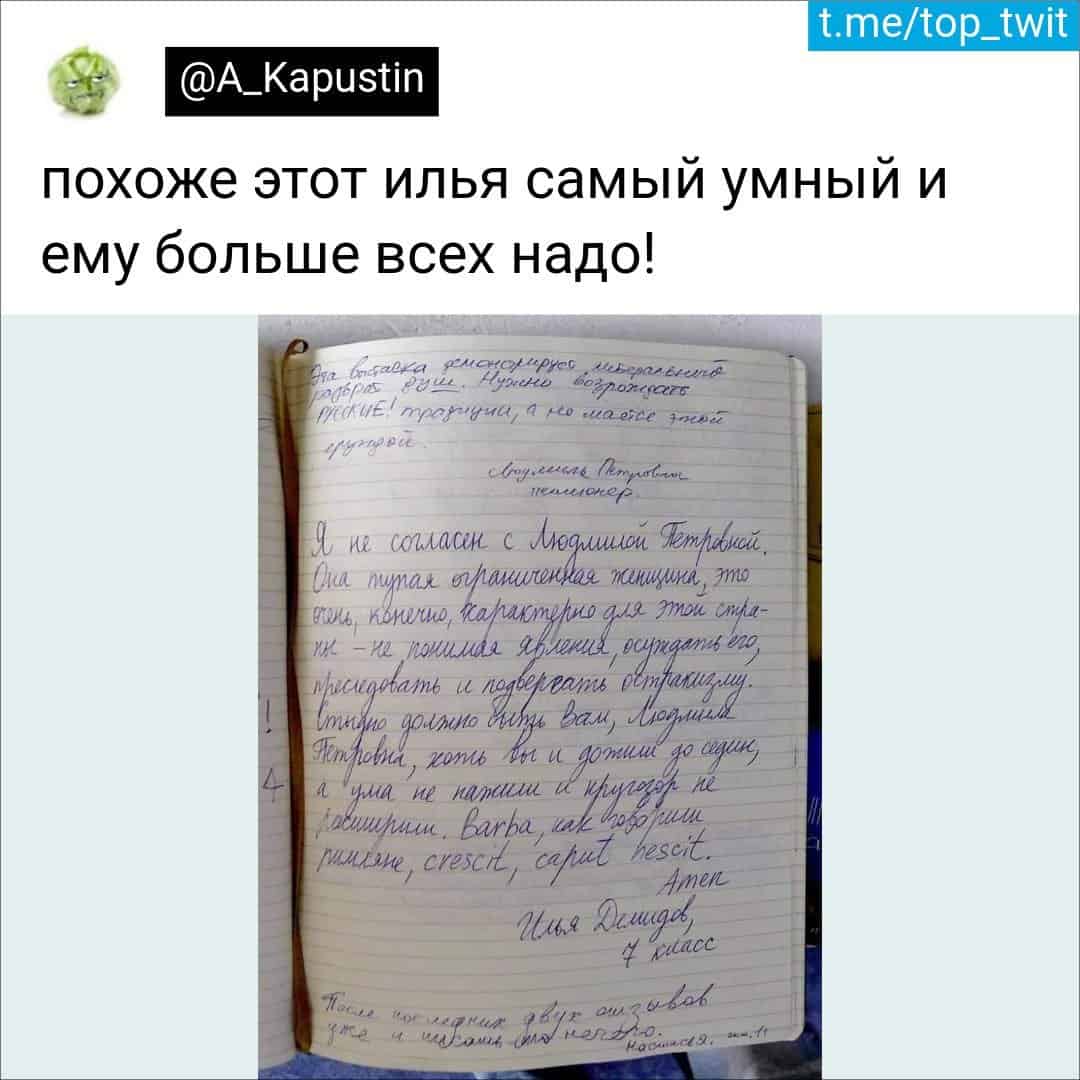 t.me/top_twit
@A_Kapustin
похоже этот илья самый умный и
ему больше всех надо!
Эта выставка демонстрирует либерального
разврат душ. Нужно возрождать
РУССКИЕ! традиции, а не маятся этой
ерундой.
Людмила Петровна
пенсионер.
Я не согласен с Людмилой Петровной.
Она тупая ограниченная женщина, это
очень, конечно, характерно для этой стра-
ны – не понимая явления, осуждать его,
преследовать и подвергать остракизму.
Стыдно должно быть Вам, Людмила
Петровна, хоть вы и дожили до седин,
а ума не нажили и кругозор не
расширили. Barba, как говорили
римляне, crescit, caput nescit.
Amen
Илья Демидов,
7 класс
После последних двух отзывов
уже и писать то нечего.
Настася.
!
4